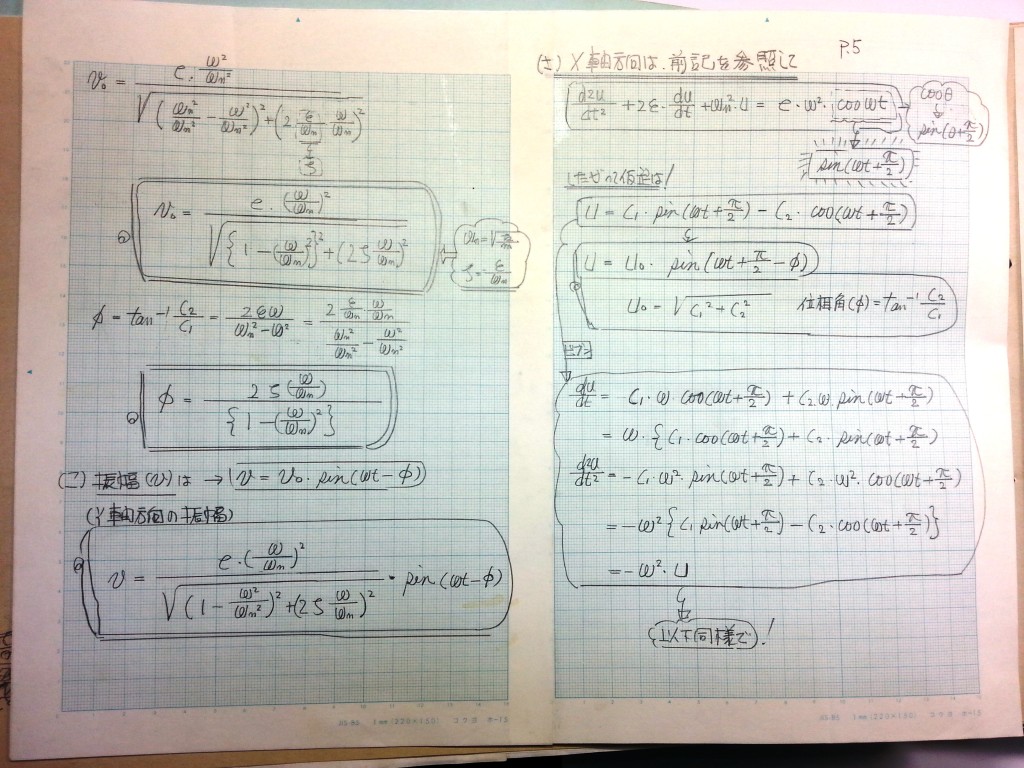 v₀ = e・ω²/ωn² / √((ωn²/ωn² − ω²/ωn²)² + (2・ε/ωn・ω/ωn)²)
ζ
v₀ = e・(ω/ωn)² / √({1−(ω/ωn)²}² + (2ζ ω/ωn)²)
ζ = ε/ωn
φ = tan⁻¹ C₂/C₁ = 2εω/(ωn²−ω²) = 2 ε/ωn ω/ωn / (ωn²/ωn² − ω²/ωn²)
φ = 2ζ(ω/ωn) / {1−(ω/ωn)²}
(ニ) 振幅(v)は → v = v₀・sin(ωt−φ)
(Y軸方向の振幅)
v = e・(ω/ωn)² / √((1−ω²/ωn²)² + (2ζ ω/ωn)²)・sin(ωt−φ)
P.5
X軸方向は、前記を参照して
d²u/dt² + 2ε・du/dt + ωn²・u = e・ω²・cosωt
cosθ
sin(θ+π/2)
sin(ωt+π/2)
したがって仮定は!
u = C₁・sin(ωt+π/2) − C₂・cos(ωt+π/2)
u = u₀・sin(ωt+π/2−φ)
u₀ = √(C₁²+C₂²) 位相角(φ)=tan⁻¹ C₂/C₁
du/dt = C₁・ω・cos(ωt+π/2) + C₂・ω・sin(ωt+π/2)
= ω・{C₁・cos(ωt+π/2) + C₂・sin(ωt+π/2)
d²u/dt² = −C₁・ω²・sin(ωt+π/2) + C₂・ω²・cos(ωt+π/2)
= −ω²{C₁ sin(ωt+π/2) − C₂・cos(ωt+π/2)}
= −ω²・u
以下同様で!
1mm(220×150) コクヨ ホ-15
1mm(220×150) コクヨ ホ-15